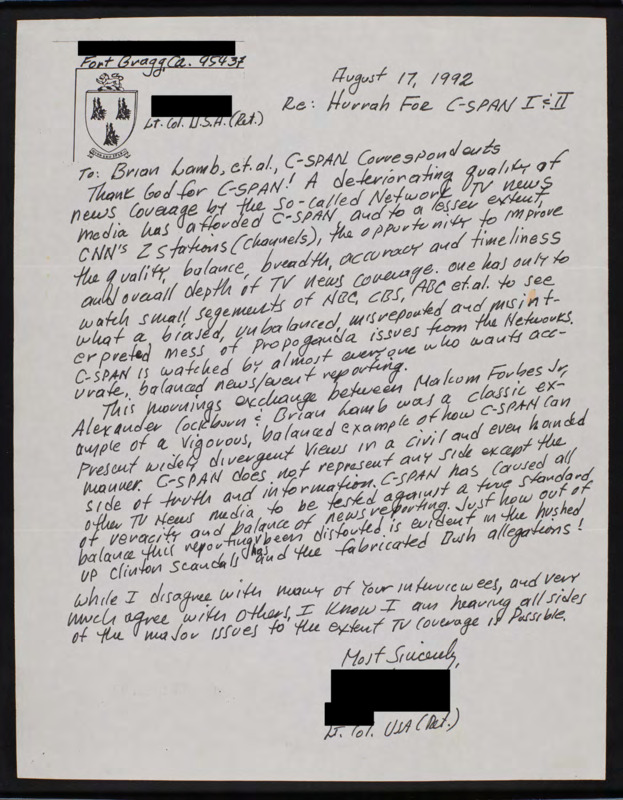 Fort Bragg, Ca. 95437
August 17, 1992
Re: Hurrah For C-SPAN I & II
Lt. Col. U.S.A. (Ret.)
To: Brian Lamb, et.al., C-SPAN Correspondents
Thank God for C-SPAN! A deteriorating quality of
news coverage by the so-called Network TV news
media has afforded C-SPAN, and to a lesser extent,
CNN's 2 stations (channels), the opportunity to improve
the quality, balance, breadth, accuracy and timeliness
and overall depth of TV news coverage. one has only to
watch small segements of NBC, CBS, ABC et.al. to see
what a biased, unbalanced, misreported and misint-
erpreted mess of Propoganda issues from the Networks.
C-SPAN is watched by almost everyone who wants acc-
urate, balanced news/event reporting.
This mornings exchange between Malcom Forbes Jr,
Alexander Cockburn & Brian Lamb was a classic ex-
ample of a vigorous, balanced example of how C-SPAN can
Present widely divergent views in a civil and even handed
manner. C-SPAN does not represent any side except the
side of truth and information. C-SPAN has caused all
other TV News media to be tested against a true standard
of veracity and balance of news reporting. Just how out of
balance this reporting has been distorted is evident in the hushed
up Clinton Scandals and the fabricated Bush allegations!
While I disagree with many of Your interviewees, and very
much agree with others, I know I am hearing all sides
of the major issues to the extent TV coverage is Possible.
Most Sincerely,
Lt. Col. USA (Ret.)